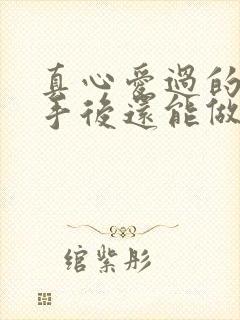 真心愛過的
手後還能做
綰紫彤